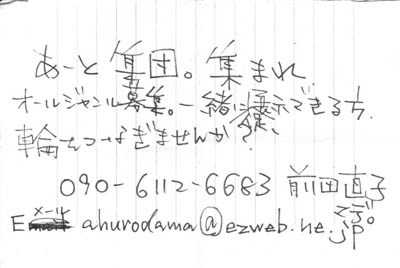 あーと集団。集まれ
オールジャンル募集。一緒に展示できる方、
車輪をつなぎませんか?
090-6112-6683 前田直子
Eメール ahurodama@ezweb.ne.jp まで。